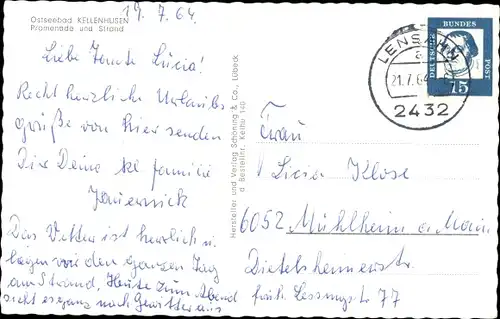 19.7.64.
Ostseebad KELLENHUSEN
Promenade und Strand
Liebe Tante Lucia!
Recht herzliche Urlaubs
grüße von hier senden
Dir Deine
Familie
Das Wetter ist herrlich u.
liegen wir den ganzen Tag
am Strand, Heute zum Abend
sieht es ganz nach Gewitter aus
Hersteller und Verlag Schöning & Co., Lübeck
Bestellnr. Kelhu 140
LENSAHN
a
21.7.64
2432
DEUTSCHE BUNDESPOST
15
Frau
Licia Klose
6052 Mühlheim a. Main
Dietesheimerstr.
früh. Lessingstr. 77